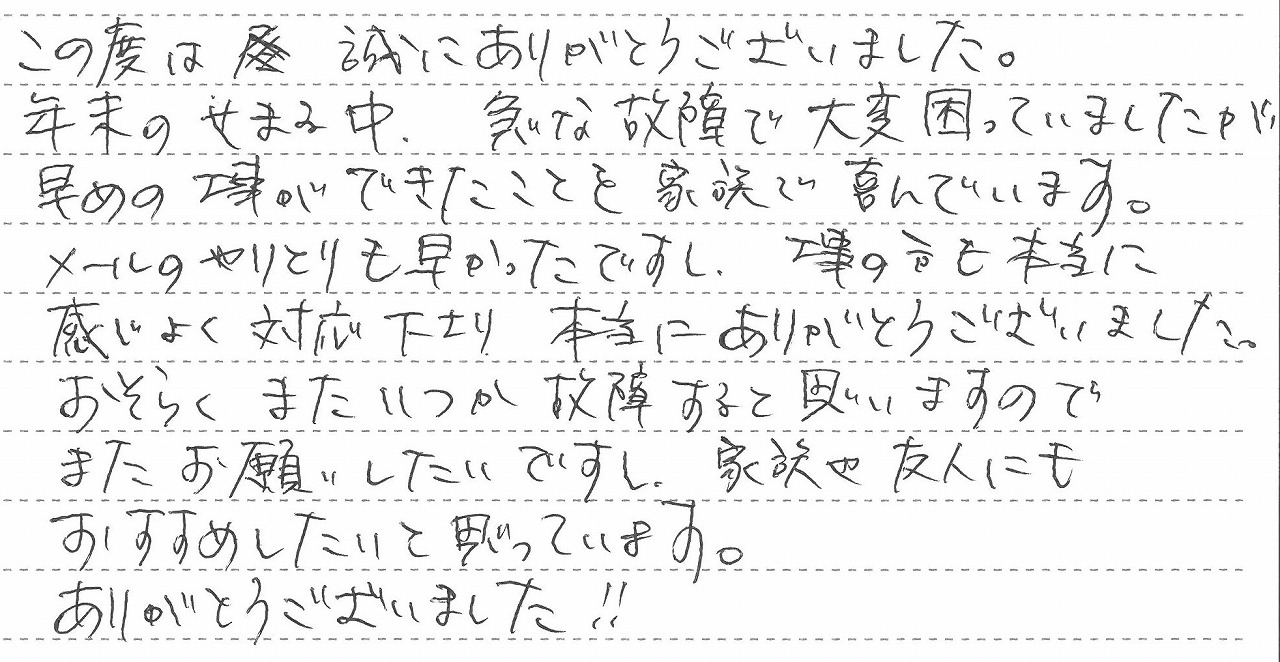 この度は 誠にありがとうございました。
年末のせまる中、急な故障で大変困っていましたが
早めの工事ができたことを家族で喜んでいます。
メールのやりとりも早かったですし、工事の方も本当に
感じよく対応下さり本当にありがとうございました。
おそらくまたいつか故障すると思いますので
またお願いしたいですし、家族や友人にも
おすすめしたいと思っています。
ありがとうございました!!